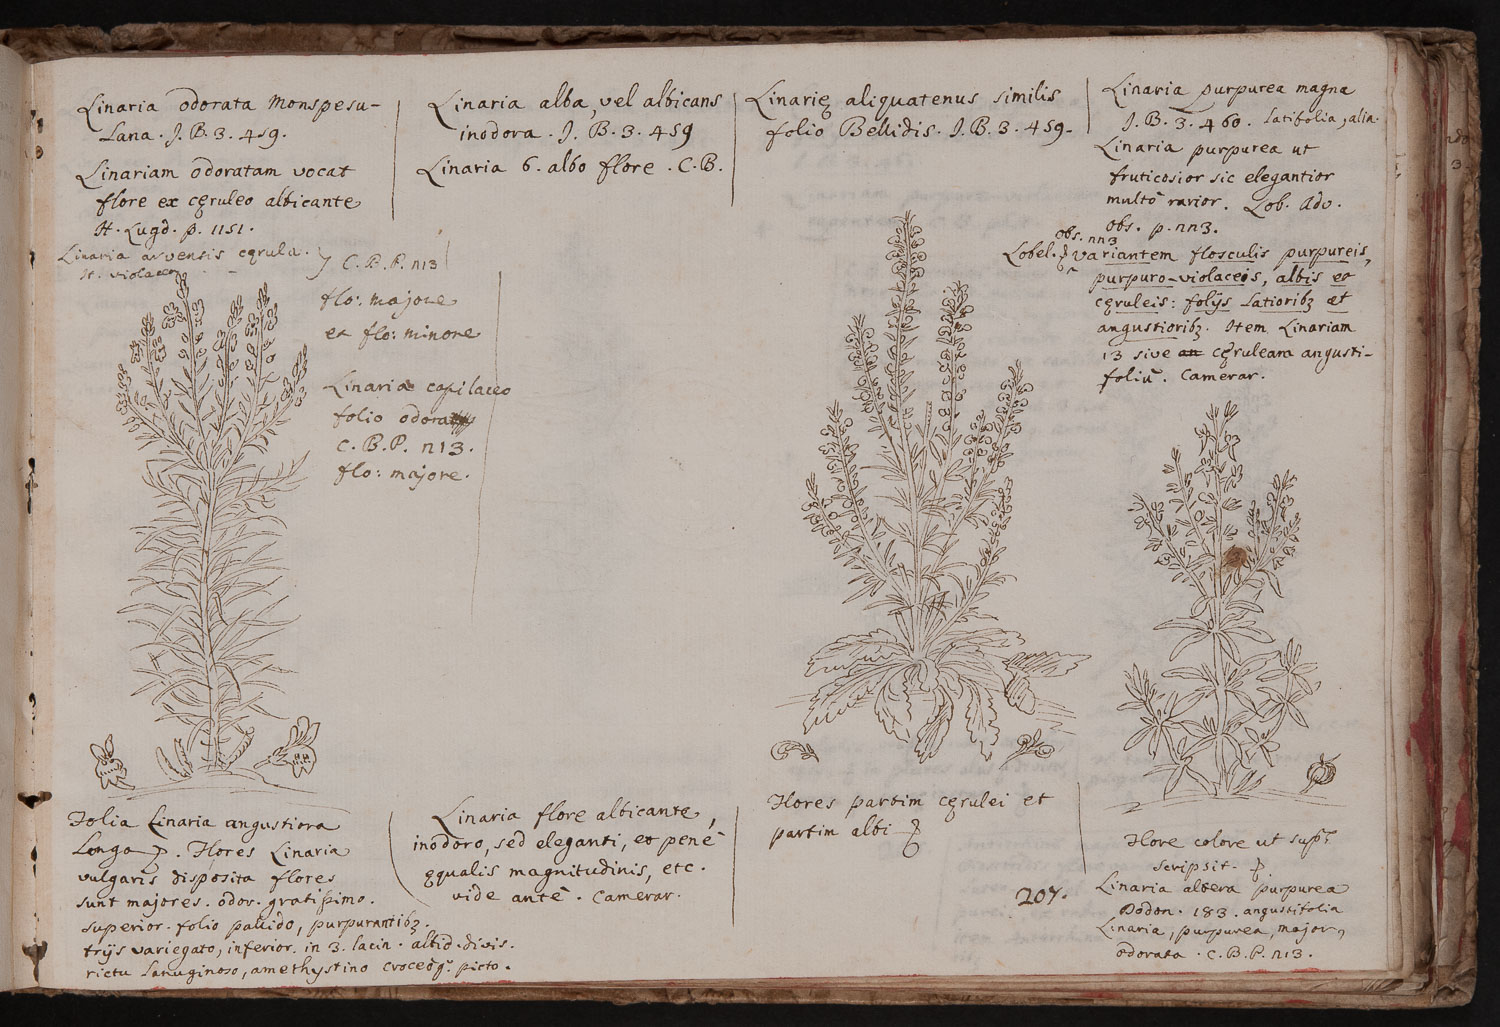 Linaria odorata Monspesu-
lana. J. B. 3. 459.
Linariam odoratam vocat
flore ex cęruleo albicante
H. Lugd. p. 1151.
Linaria arvensis cęrula.
H. violaceo
C. B. P. n13
flo: majore
et flo: minore
Linaria capilaceo
folio odora
C. B. P. n13.
flo: majore.
Linaria alba, vel albicans
inodora. J. B. 3. 459
Linaria 6. albo flore. C. B.
Linarię aliquatenus similis
folio Bellidis. J. B. 3. 459.
Linaria purpurea magna
J. B. 3. 460. latifolia, alia.
Linaria purpurea ut
fruticosior sic elegantior
multò rarior. Lob. Adv.
obs. p. nn3.
obs. nn3
Lobel. variantem flosculis purpureis,
purpuro-violaceis, albis et
cęruleis: folijs latioribȝ et
angustioribȝ. Item Linariam
13 sive an cęruleam angusti-
foliū. Camerar.
Folia Linaria angustiora
longa. Flores Linaria
vulgaris disposita flores
sunt majores. odor. gratissimo.
superior. folio pallido, purpurantibȝ.
trijs variegato, inferior. in 3. lacin. altid. divis.
rictu lanuginoso, amethystino croceoq. picto.
Linaria flore albicante,
inodoro, sed eleganti, et penè
ęqualis magnitudinis, etc.
vide antè. Camerar.
Flores partim cęrulei et
partim albi
207.
Flore colore ut sup.
scripsit.
Linaria altera purpurea
Dodon. 183. angustifolia
Linaria, purpurea, major,
odorata. C. B. P. n13.